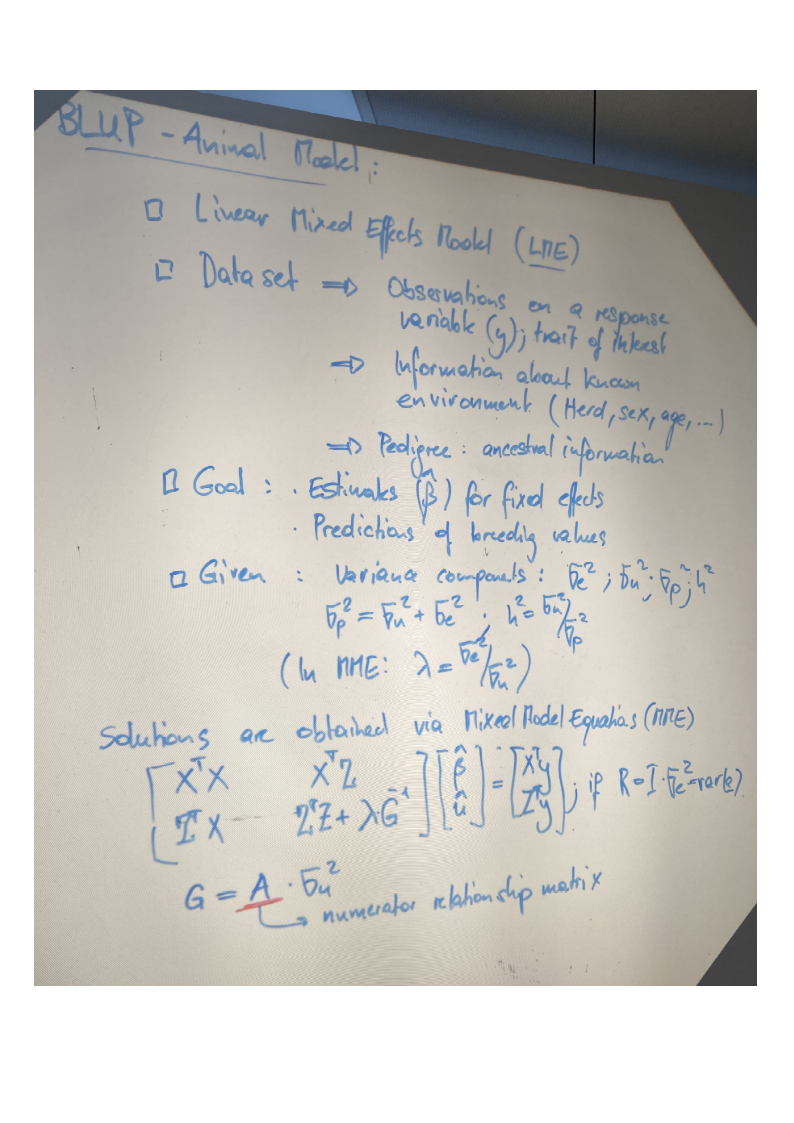 BLUP - Animal Model :
□ Linear Mixed Effects Model (LME)
□ Data set ⇒ Observations on a response
variable (y); trait of interest
⇒ Information about known
environment (Herd, sex, age, ...)
⇒ Pedigree : ancestral information
□ Goal : · Estimates (β̂) for fixed effects
· Predictions of breeding values
□ Given : Variance components : σe² ; σu² ; σp² ; h²
σp² = σu² + σe² ; h² = σu²/σp²
(In MME: λ = σe²/σu²)
Solutions are obtained via Mixed Model Equations (MME)
[XᵀX XᵀZ] [β̂] = [Xᵀy] ; if R = I · σe² = var(e)
[ZᵀX ZᵀZ + λG⁻¹] [û] [Zᵀy]
G = A · σu²
numerator relationship matrix